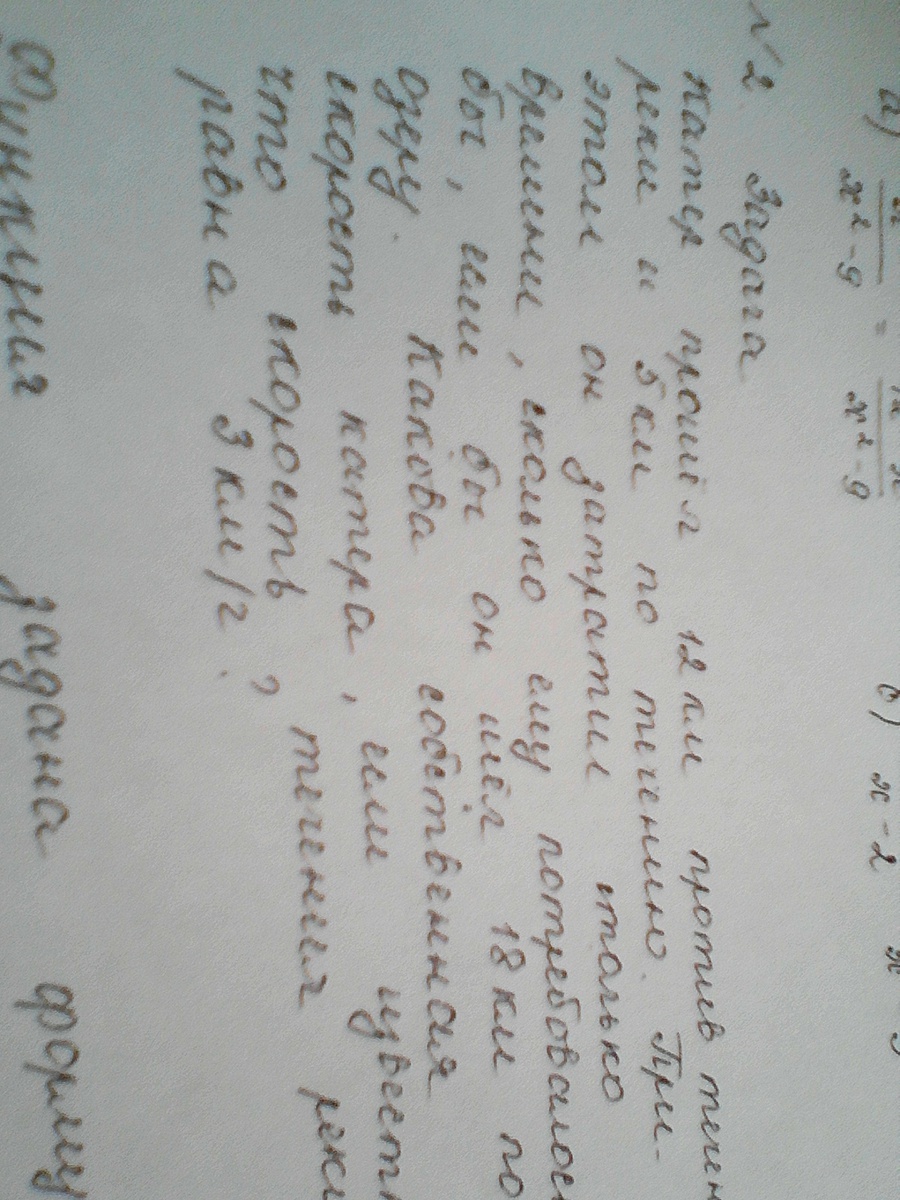 а) x/(x²-9) = 12-x/(x²-9) б) x-2
№2. Задача
Катер прошёл 12 км против
реки и 5 км по течению. При
этом он затратил столько
времени, сколько ему потребовалось
бы, если бы он шёл 18 км по
озеру. Какова собственная
скорость катера, если
что скорость течения реки
равна 3 км/ч?
Функция задана